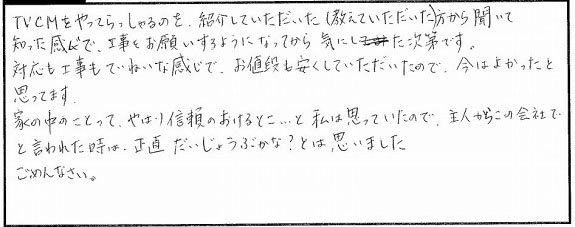 TVCMをやってらっしゃるのを、紹介していただいた(教えていただいた)方から聞いて
知った感じで、工事をお願いするようになってから気にした次第です。
対応も工事もていねいな感じで、お値段も安くしていただいたので、今はよかったと
思ってます。
家の中のことって、やはり信頼のおけるとこ…と私は思っていたので、主人からこの会社で
と言われた時は、正直だいじょうぶかな?とは思いました
ごめんなさい。